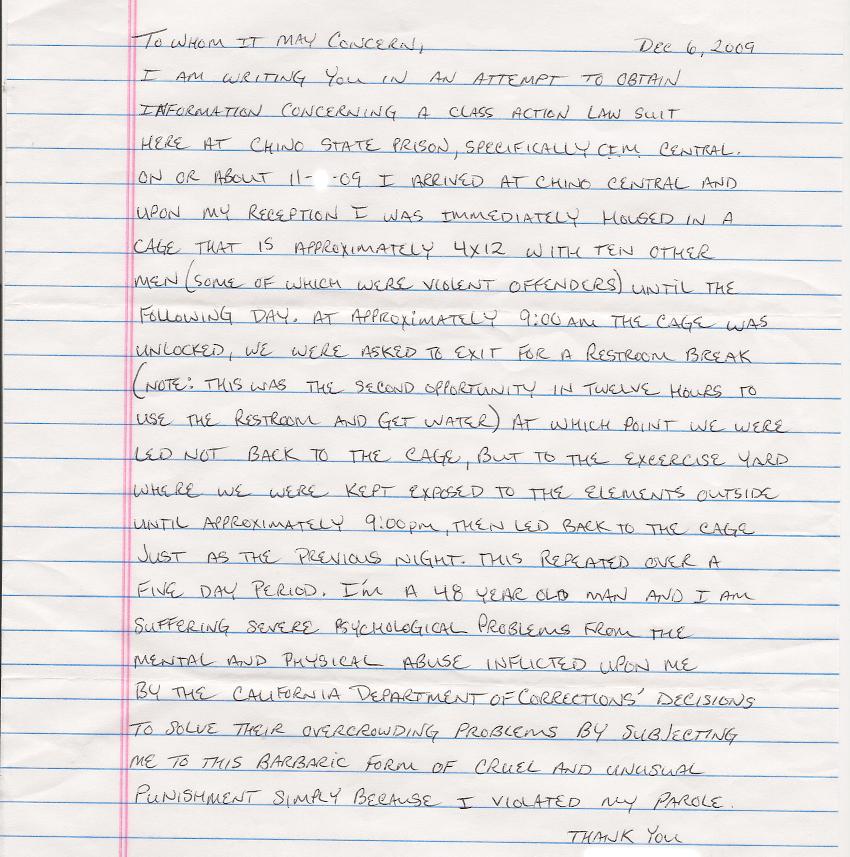 TO WHOM IT MAY CONCERN, DEC 6, 2009
I AM WRITING YOU IN AN ATTEMPT TO OBTAIN
INFORMATION CONCERNING A CLASS ACTION LAW SUIT
HERE AT CHINO STATE PRISON, SPECIFICALLY C.I.M. CENTRAL.
ON OR ABOUT 11- -09 I ARRIVED AT CHINO CENTRAL AND
UPON MY RECEPTION I WAS IMMEDIATELY HOUSED IN A
CAGE THAT IS APPROXIMATELY 4X12 WITH TEN OTHER
MEN (SOME OF WHICH WERE VIOLENT OFFENDERS) UNTIL THE
FOLLOWING DAY. AT APPROXIMATELY 9:00 AM THE CAGE WAS
UNLOCKED, WE WERE ASKED TO EXIT FOR A RESTROOM BREAK
(NOTE: THIS WAS THE SECOND OPPORTUNITY IN TWELVE HOURS TO
USE THE RESTROOM AND GET WATER) AT WHICH POINT WE WERE
LED NOT BACK TO THE CAGE, BUT TO THE EXCERCISE YARD
WHERE WE WERE KEPT EXPOSED TO THE ELEMENTS OUTSIDE
UNTIL APPROXIMATELY 9:00 PM, THEN LED BACK TO THE CAGE
JUST AS THE PREVIOUS NIGHT. THIS REPEATED OVER A
FIVE DAY PERIOD. I'M A 48 YEAR OLD MAN AND I AM
SUFFERING SEVERE PSYCHOLOGICAL PROBLEMS FROM THE
MENTAL AND PHYSICAL ABUSE INFLICTED UPON ME
BY THE CALIFORNIA DEPARTMENT OF CORRECTIONS' DECISIONS
TO SOLVE THEIR OVERCROWDING PROBLEMS BY SUBJECTING
ME TO THIS BARBARIC FORM OF CRUEL AND UNUSUAL
PUNISHMENT SIMPLY BECAUSE I VIOLATED MY PAROLE.
THANK YOU